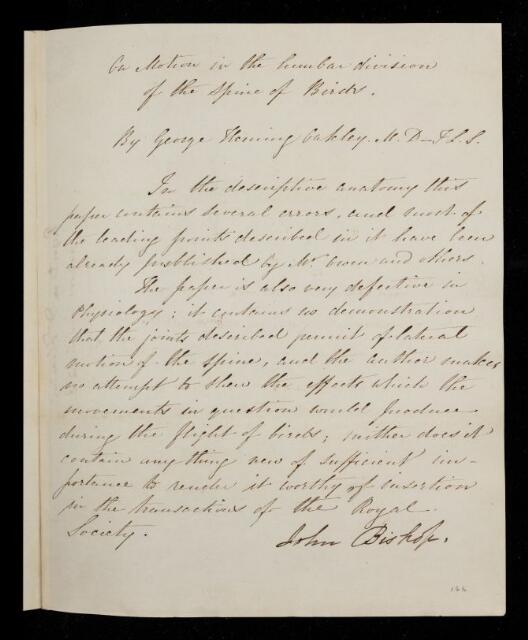 On Motion in the lumbar division
of the Spine of Birds.
By George Fleming Oakley. M.D_ F.L.S.
In the descriptive anatomy this
paper contains several errors, and most of
the leading points described in it have been
already published by Mr Owen and others.
The paper is also very defective in
Physiology; it contains no demonstration
that the joints described permit of lateral
motion of the spine, and the author makes
no attempt to shew the effects which the
movements in question would produce
during the flight of birds; neither does it
contain any thing new of sufficient im-
portance to render it worthy of insertion
in the transactions of the Royal
Society.
John Bishop.